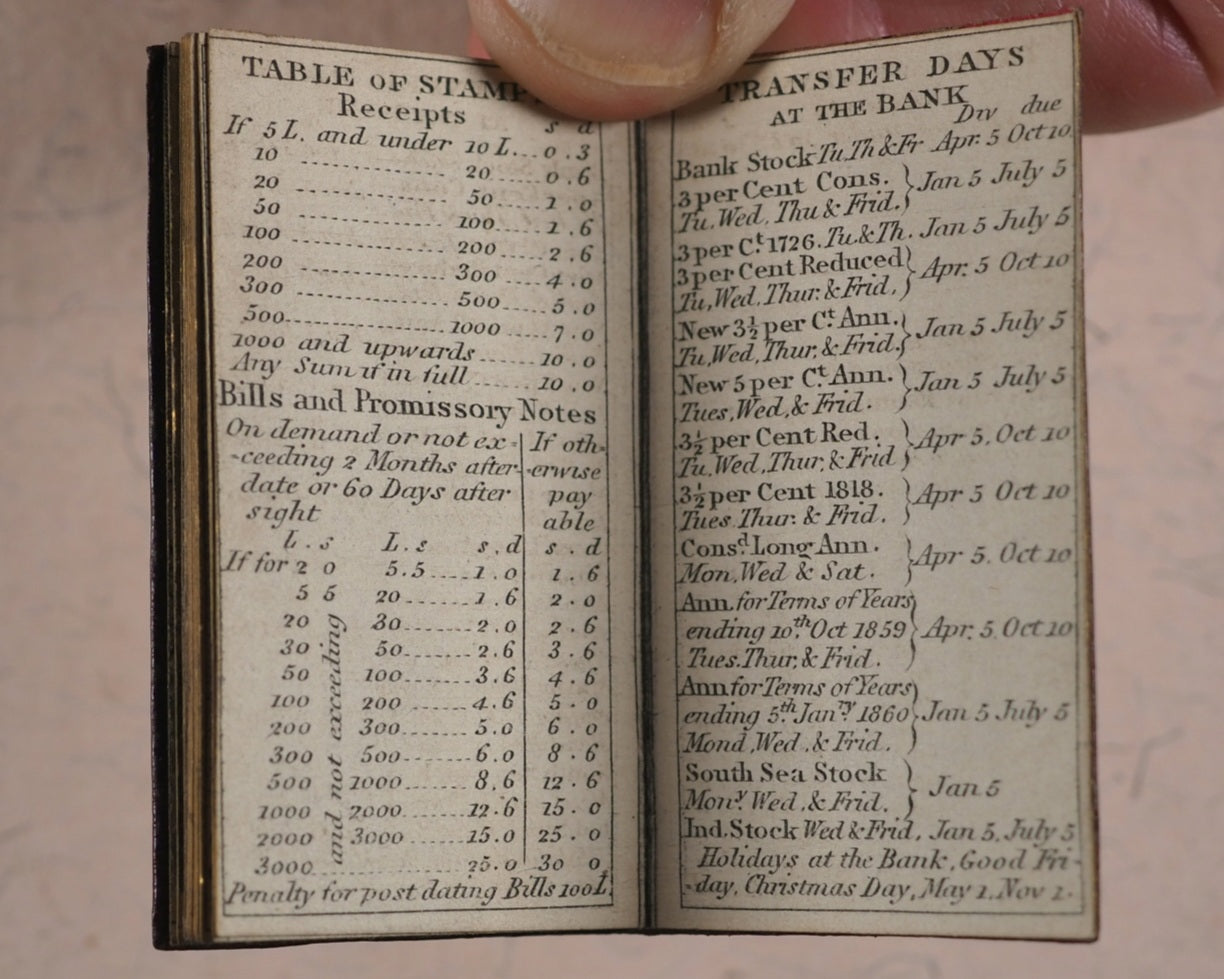 TABLE OF STAMP
Receipts
s d
If 5 L. and under 10 L...0.3
10 .................... 20 .....0.6
20 .................... 50 .....1.0
50 .................... 100 .....1.6
100 .................... 200 .....2.6
200 .................... 300 .....4.0
300 .................... 500 .....5.0
500 .................... 1000 .....7.0
1000 and upwards ...... 10.0
Any Sum if in full ...... 10.0
Bills and Promissory Notes
On demand or not ex- If oth-
-ceeding 2 Months after -erwise
date or 60 Days after pay
sight able
L. s L. s s. d s. d
If for 2 0 5.5 ....1.0 1.6
5 5 20 .......1.6 2.0
20 30 .......2.0 2.6
30 50 .......2.6 3.6
50 100 .......3.6 4.6
100 200 .......4.6 5.0
200 300 .......5.0 6.0
300 500 .......6.0 8.6
500 1000 .......8.6 12.6
1000 2000 .......12.6 15.0
2000 3000 .......15.0 25.0
3000 ....................25.0 30 0
and not exceeding
Penalty for post dating Bills 100L
TRANSFER DAYS
AT THE BANK
Div due
Bank Stock Tu Th & Fr Apr. 5 Oct 10
3 per Cent Cons. } Jan 5 July 5
Tu. Wed, Thu & Frid.
3 per Ct. 1726. Tu & Th. Jan 5 July 5
3 per Cent Reduced } Apr. 5 Oct 10
Tu, Wed, Thur. & Frid.
New 3½ per Ct Ann. } Jan 5 July 5
Tu, Wed, Thur, & Frid.
New 5 per Ct. Ann. } Jan 5 July 5
Tues, Wed, & Frid.
3½ per Cent Red. } Apr 5. Oct 10
Tu, Wed, Thur, & Frid
3½ per Cent 1818. } Apr 5 Oct 10
Tues. Thur. & Frid.
Consd. Long Ann. } Apr 5. Oct 10
Mon, Wed & Sat.
Ann. for Terms of Years
ending 10th. Oct 1859 } Apr. 5. Oct 10
Tues. Thur, & Frid.
Ann for Terms of Years
ending 5th. Jany. 1860 } Jan 5 July 5
Mond, Wed, & Frid.
South Sea Stock } Jan 5
Mony. Wed, & Frid.
Ind. Stock Wed & Frid, Jan 5. July 5
Holidays at the Bank, Good Fri-
-day, Christmas Day, May 1. Nov 1.